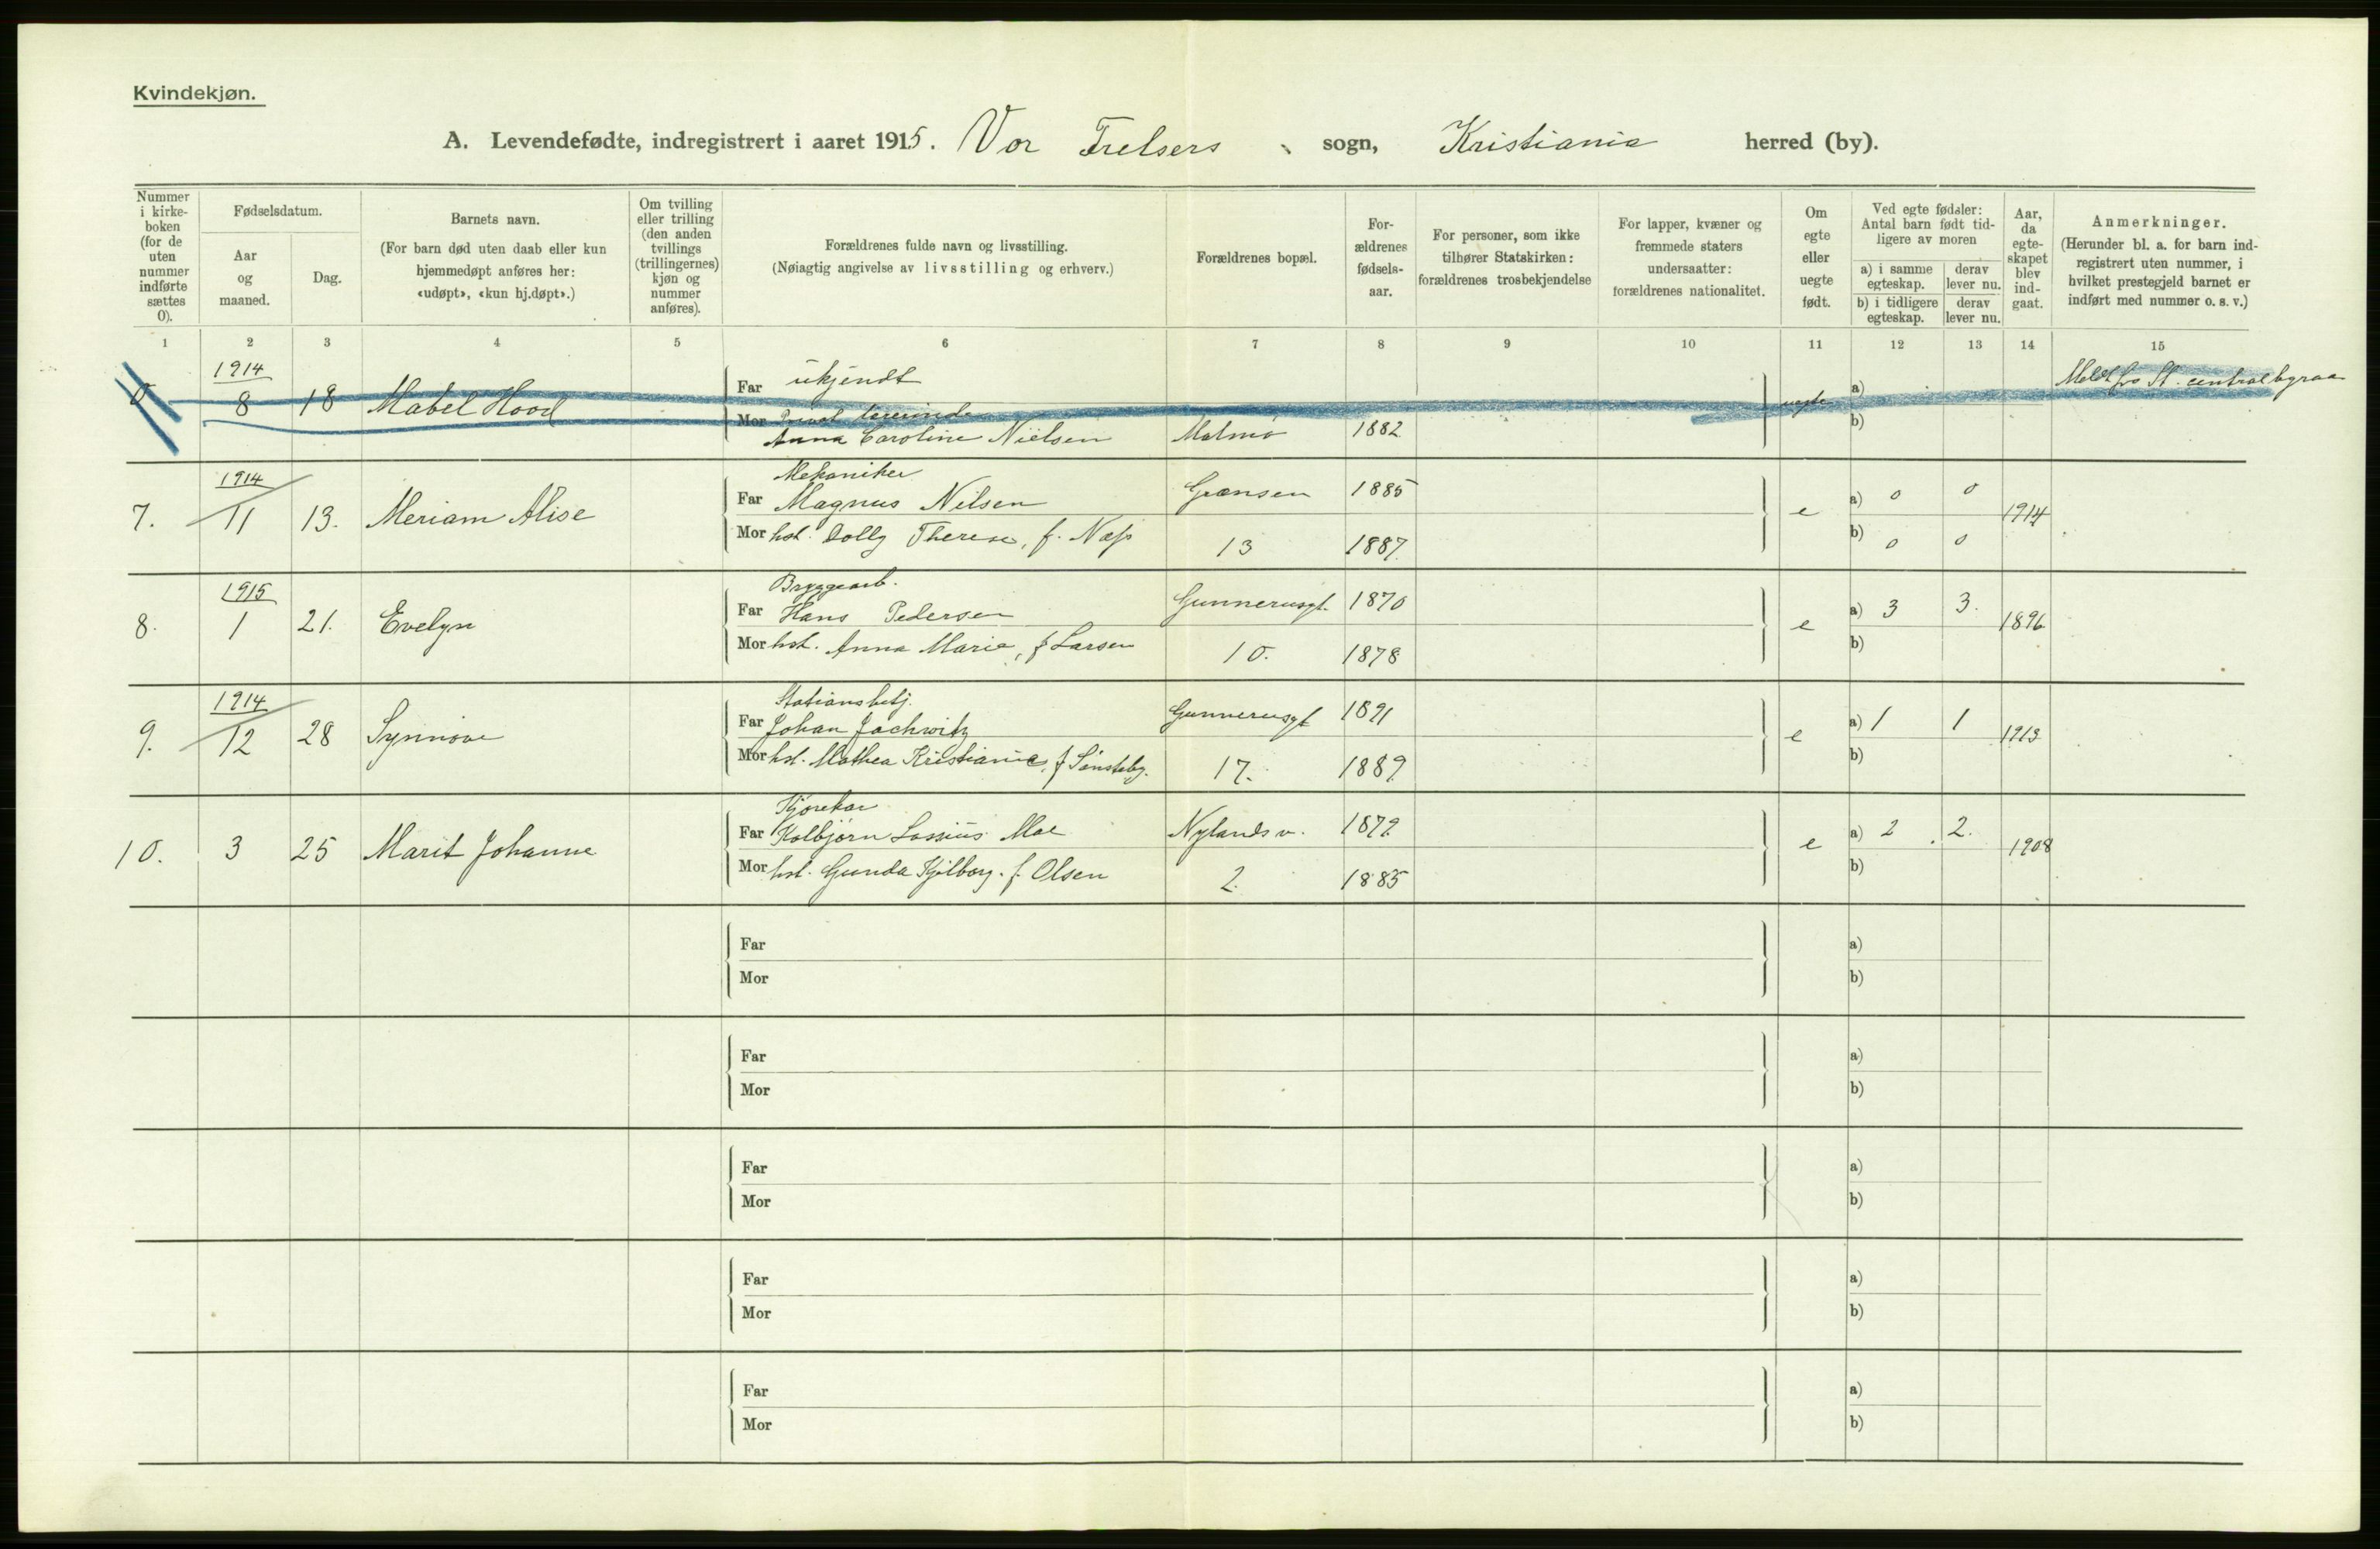 Kvindekjøn.
A. Levendefødte, indregistrert i aaret 1915. Vor Frelsers sogn, Kristiania herred (by).
Nummer i kirke- boken (for de uten nummer indførte sættes 0).
Fødselsdatum.
Aar og maaned.
Dag.
Barnets navn.
(For barn død uten daab eller kun hjemmedøpt anføres her: «udøpt», «kun hj.døpt».)
Om tvilling eller trilling (den anden tvillings (trillingernes) kjøn og nummer anføres).
Forældrenes fulde navn og livsstilling.
(Nøiagtig angivelse av livsstilling og erhverv.)
Forældrenes bopæl.
For- ældrenes fødsels- aar.
For personer, som ikke tilhører Statskirken: forældrenes trosbekjendelse
For lapper, kvæner og fremmede staters undersaatter: forældrenes nationalitet.
Om egte eller uegte født.
Ved egte fødsler: Antal barn født tid- ligere av moren
a) i samme egteskap.
derav lever nu.
b) i tidligere egteskap.
derav lever nu.
Aar, da egte- skapet blev ind- gaat.
Anmerkninger.
(Herunder bl. a. for barn ind- registrert uten nummer, i hvilket prestegjeld barnet er indført med nummer o. s. v.)
1 2 3 4 5 6 7 8 9 10 11 12 13 14 15
1914
0 8 18 Mabel Hood
Far ukjendt
Mor Privat lærerinde
Anna Caroline Nielsen Malmö 1882
uegte a)
b)
Meldt fra St. centralbyraa
1914
7. 11 13. Meriam Alise
Mekaniker
Far Magnus Nilsen Grænsen 1885
Mor hst. Dolly Therese, f. Næss 13 1887.
e a) 0 0 1914
b) 0 0
1915
8. 1 21. Evelyn
Bryggearb.
Far Hans Pedersen Gunnerusgt. 1870
Mor hst. Anna Marie, f Larsen 10. 1878
e a) 3 3. 1896
b)
1914
9. 12 28 Synnöve
Stationsbetj.
Far Johan Jachwitz Gunnerusgt 1891
Mor hst. Mathea Kristiania, f Sönsteby. 17. 1889.
e a) 1 1 1913
b)
10. 3 25 Marit Johanne
Kjörekar
Far Kolbjörn Lassius Moe Nylandsv. 1879
Mor hst. Gunda Kjilborg. f. Olsen 2. 1885
e a) 2 2. 1908
b)
Far a)
Mor b)
Far a)
Mor b)
Far a)
Mor b)
Far a)
Mor b)
Far a)
Mor b)